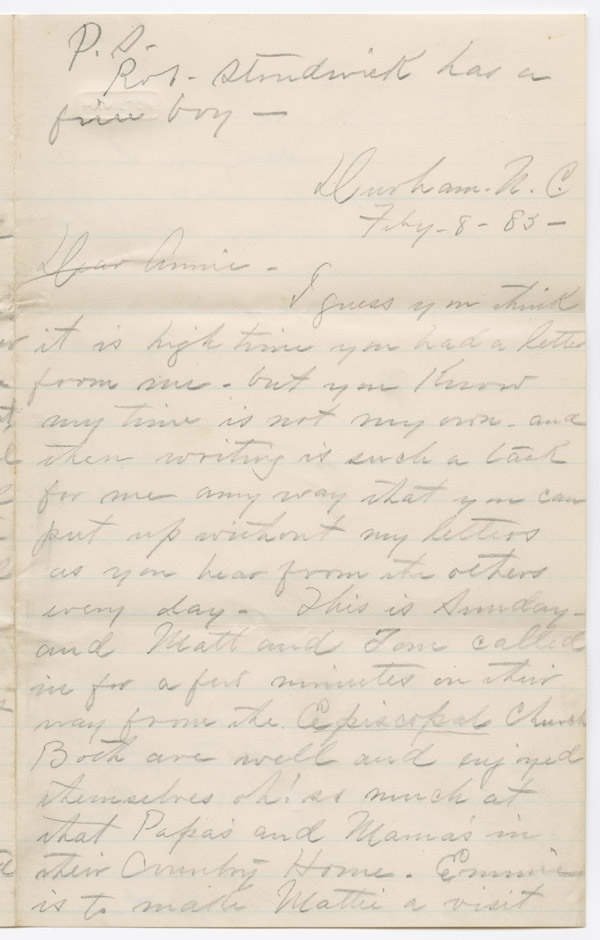 P. S.
Rob- Strudwick has a
fine boy —
Durham. N. C.
Feby- 8- 85-
Dear Annie -
I guess you think
it is high time you had a letter
from me - but you Know
my time is not my own - and
then writing is such a task
for me any way that you can
put up without my letters
as you hear from the others
every day - This is Sunday -
and Matt and Tom called
in for a few minutes on their
way from the Episcopal Church
Both are well and enjoyed
themselves oh! so much at
that Papa's and Mama's in
their Country Home. Emmie
is to make Mattie a visit